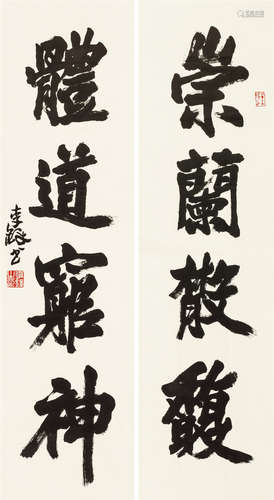 崇蘭散馥
體道窮神
李鐸書